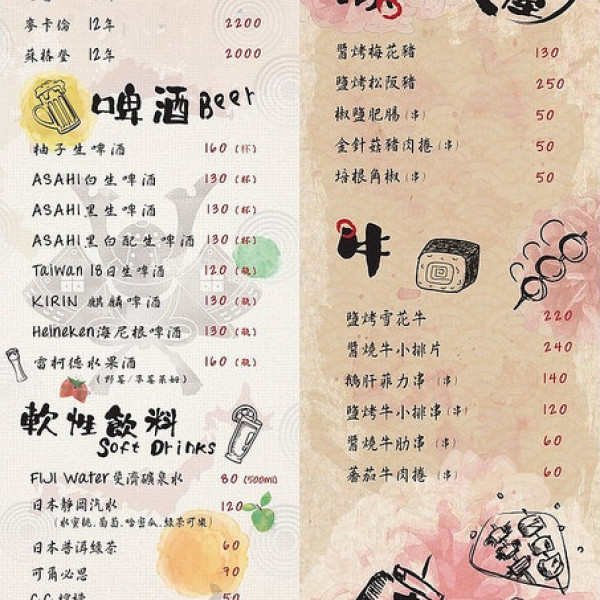 麥卡倫 12年 2200
蘇格登 12年 2000
啤酒 Beer
柚子生啤酒 160(杯)
ASAHI白生啤酒 130(杯)
ASAHI黑生啤酒 130(杯)
ASAHI黑白配生啤酒 130(杯)
Taiwan 18日生啤酒 120(瓶)
KIRIN 麒麟啤酒 130(瓶)
Heineken海尼根啤酒 130(瓶)
雷柯德水果酒 160(瓶)
軟性飲料
Soft Drinks
FIJI Water 斐濟礦泉水 80(500ml)
日本靜岡汽水 120
(水蜜桃.葡萄.哈密瓜.綠茶可樂)
日本普洱綠茶 60
可爾必思 70
50
醬烤梅花豬 130
鹽烤松阪豬 250
椒鹽肥腸(串) 50
金針菇豬肉捲(串) 50
培根角椒(串) 50
牛
鹽烤雪花牛 220
醬燒牛小排片 240
鵝肝菲力串(串) 140
鹽烤牛小排串(串) 120
醬燒牛肋串(串) 60
蕃茄牛肉捲(串) 60